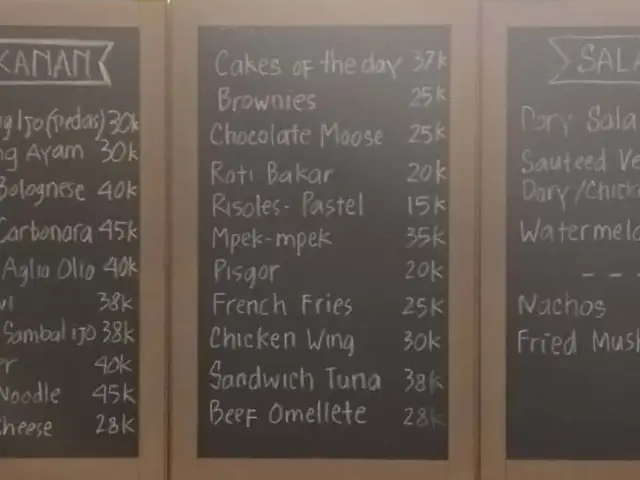 KANAN
Ijo (pedas) 30k
Ayam 30k
Bolognese 40k
Carbonara 45k
Aglio Olio 40k
38k
Sambal ijo 38k
40k
Noodle 45k
Cheese 28k
Cakes of the day 37k
Brownies 25k
Chocolate Moose 25k
Roti Bakar 20k
Risoles- Pastel 15k
Mpek-mpek 35k
Pisgor 20k
French Fries 25k
Chicken Wing 30k
Sandwich Tuna 38k
Beef Omellete 28k
SALA
Dory Sala
Sauteed Ve
Dory/Chick
Watermelo
---
Nachos
Fried Mush